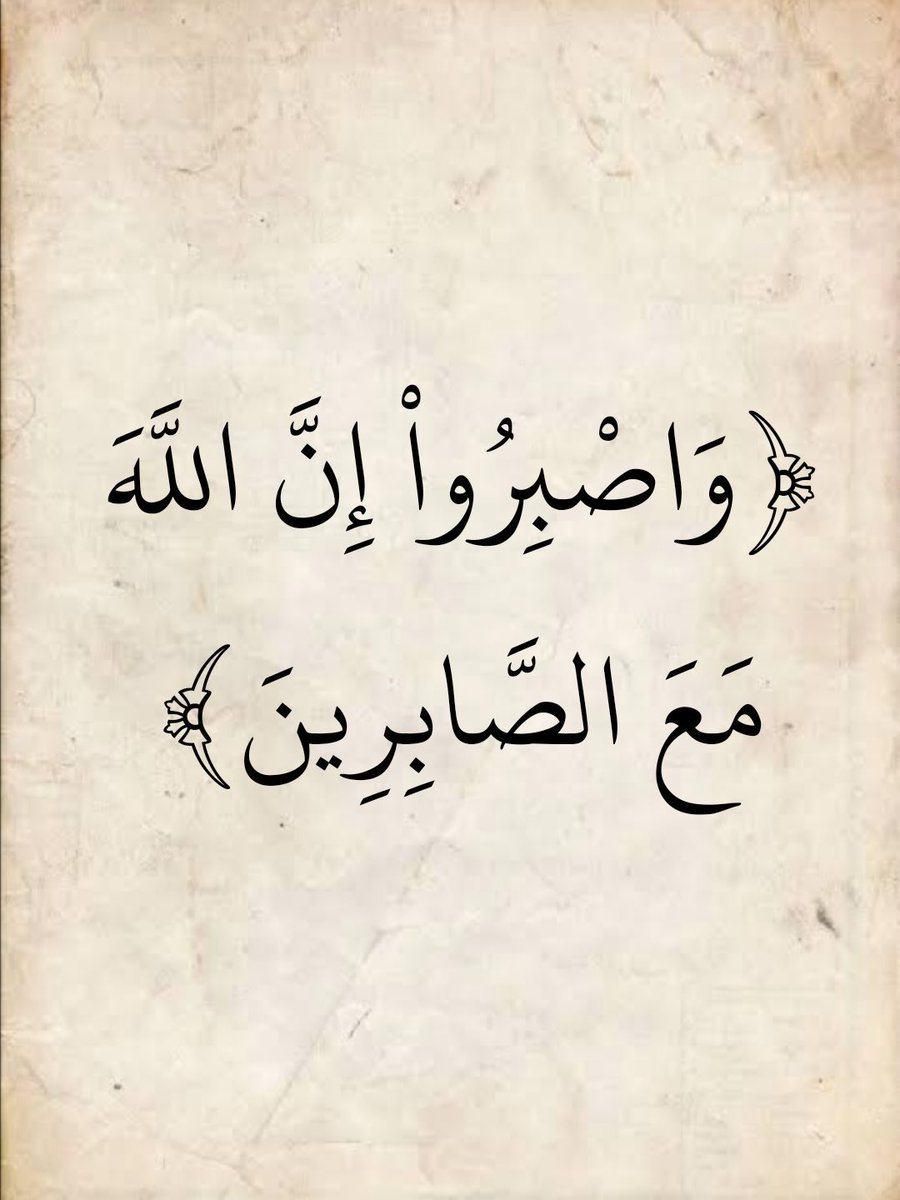 ﴿وَاصْبِرُواْ إِنَّ اللَّهَ
مَعَ الصَّابِرِينَ﴾